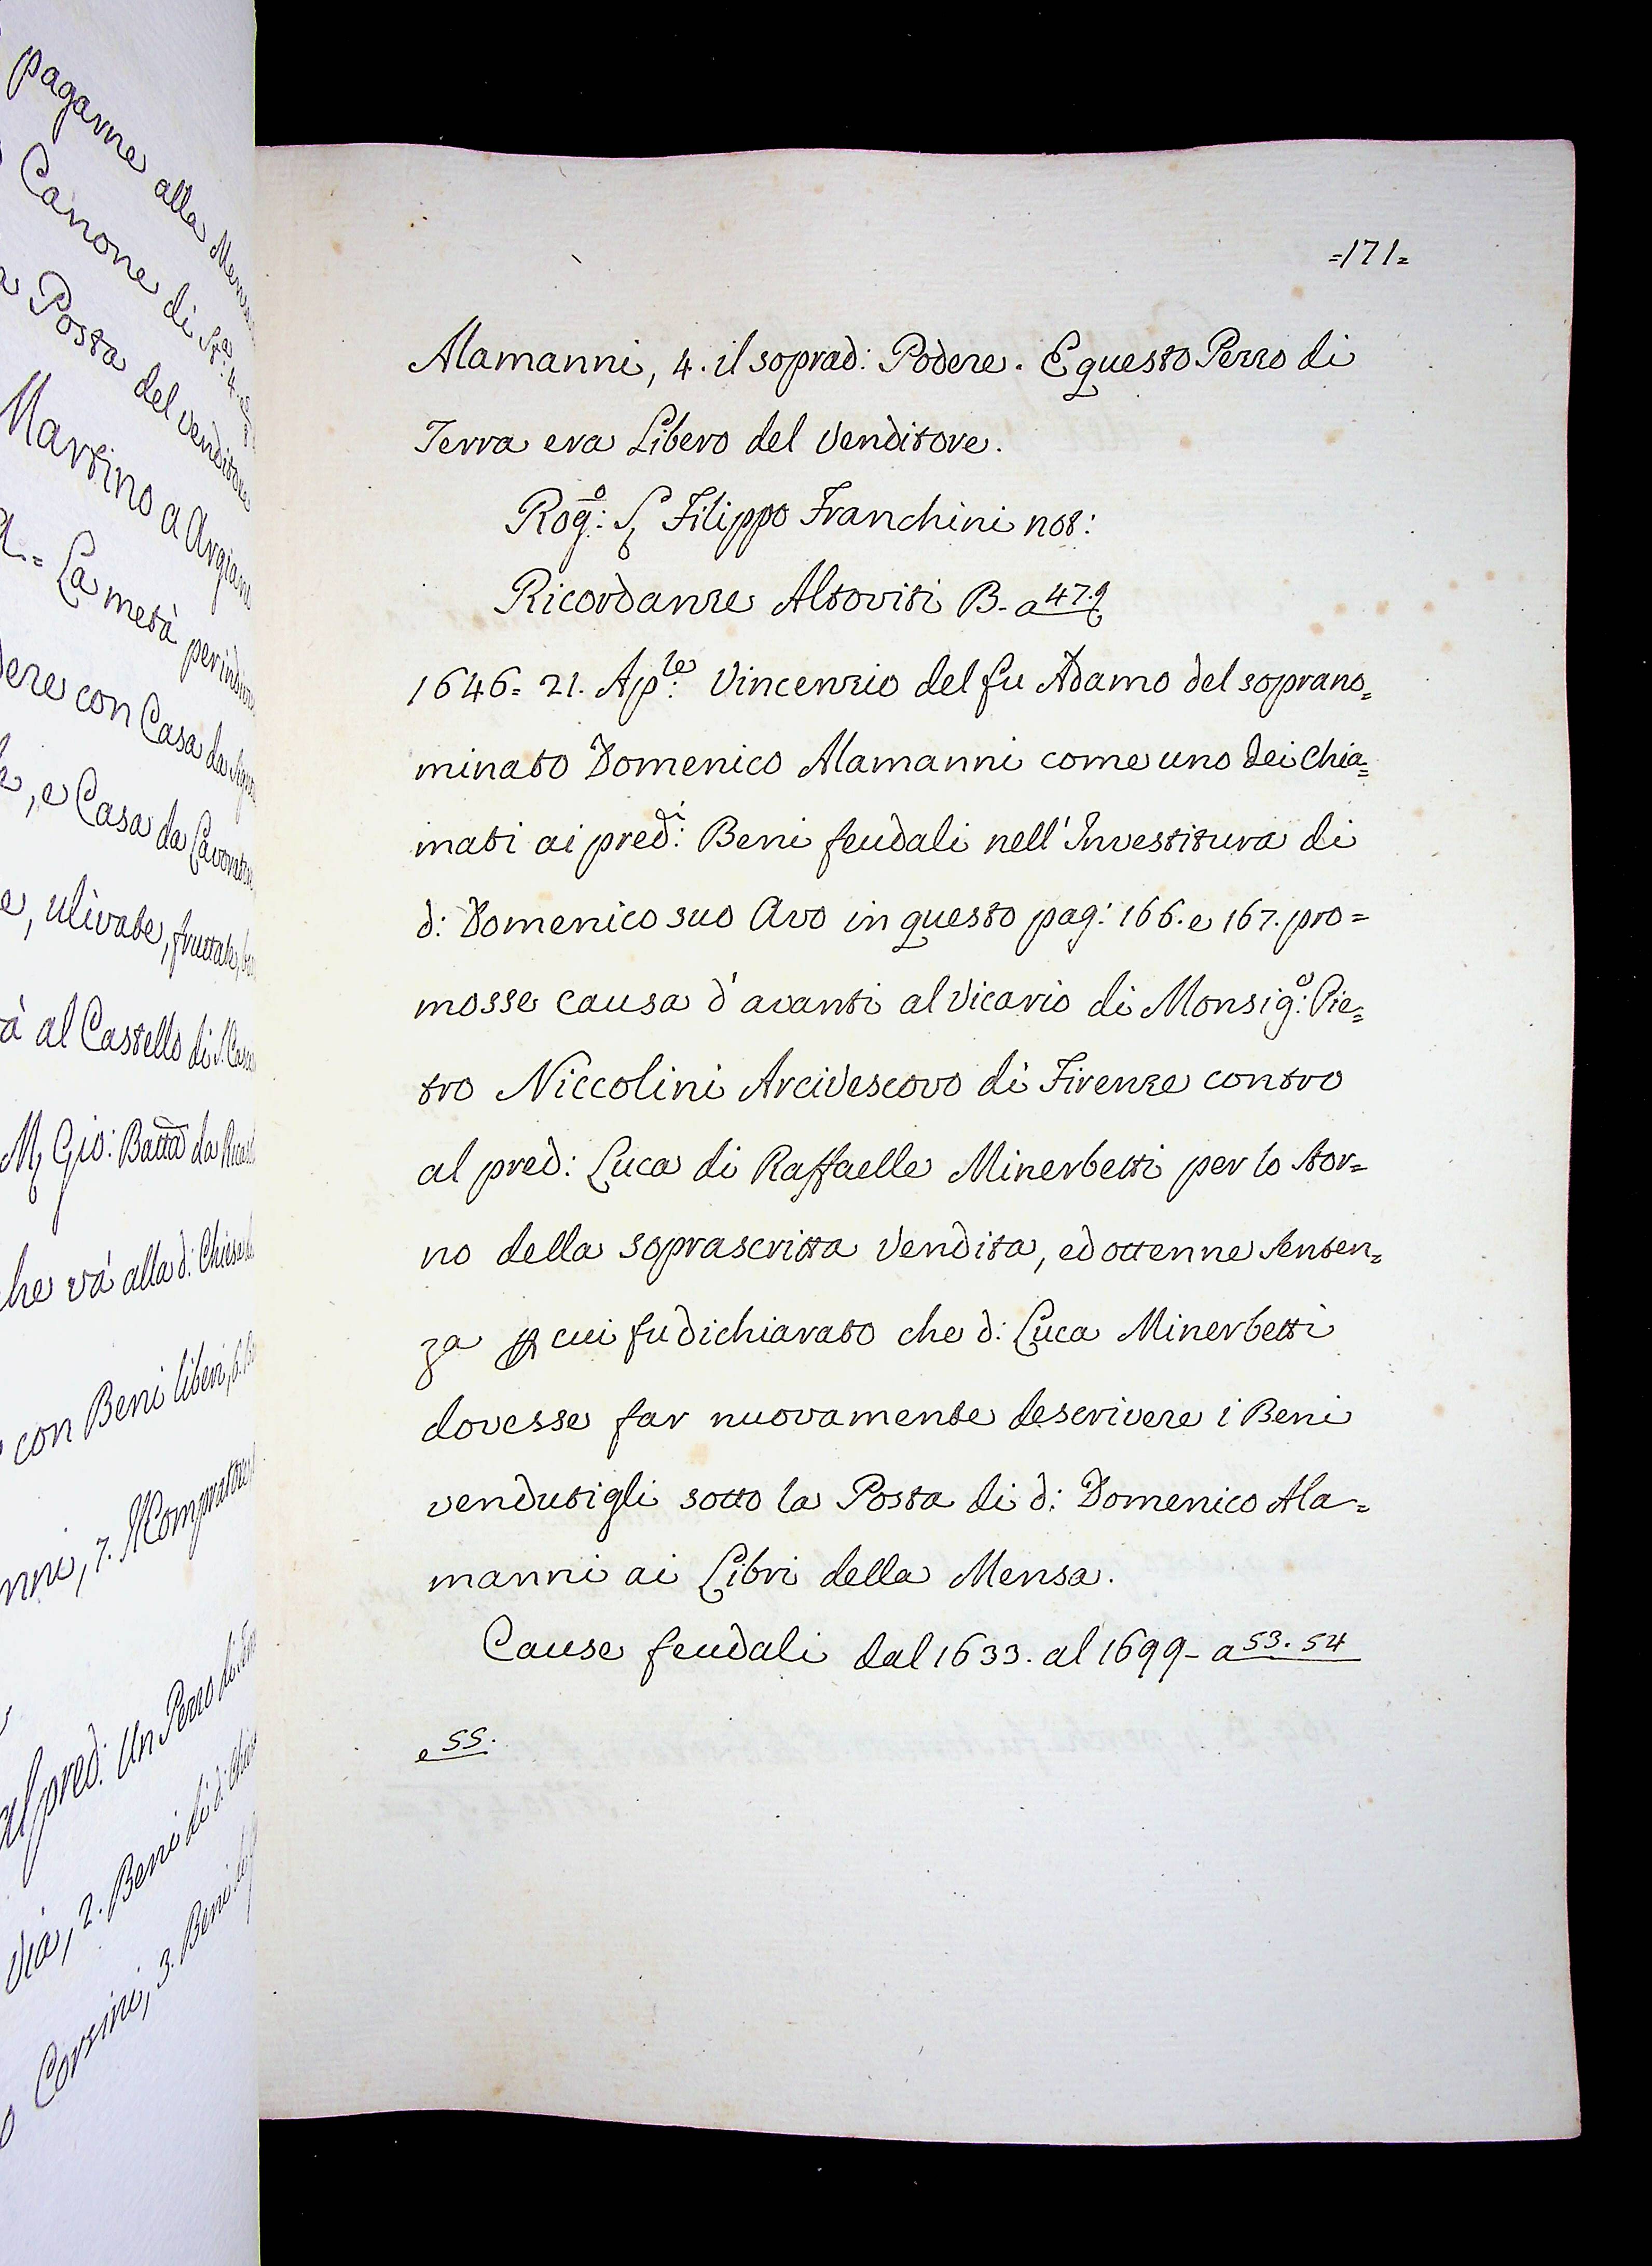 paganne alla
Canone di
Posta del venditore
Martino a Argiano
La metà per indiviso
con Casa da
, e Casa da
, ulivate, fruttate,
al Castello di S. Casc
M Gio: Batta da
he và alla d: Chiesa
con Beni liberi, 6.
nni, 7. Il Compratore
al pred: Un Pezzo di
Via, 2. Beni di d:
Corsini, 3. Beni
=171=
Alamanni, 4. il soprad: Podere. E questo Pezzo di
Terra era Libero del Venditore.
Rog:o S Filippo Franchini not:
Ricordanze Altoviti B- a 47.
1646= 21. Ap:le Vincenzio del fu Adamo del soprano=
minato Domenico Alamanni come uno dei Chia=
mati ai pred:i Beni feudali nell'Investitura di
d: Domenico suo Avo in questo pag: 166. e 167. pro=
mosse causa d'avanti al Vicario di Monsig:o Pie=
tro Niccolini Arcivescovo di Firenze contro
al pred: Luca di Raffaelle Minerbetti per lo stor=
no della soprascritta Vendita, ed ottenne senten=
za p cui fu dichiarato che d: Luca Minerbetti
dovesse far nuovamente descrivere i Beni
vendutigli sotto la Posta di d: Domenico Ala=
manni ai Libri della Mensa.
Cause feudali dal 1633. al 1699- a 53. 54
e 55.